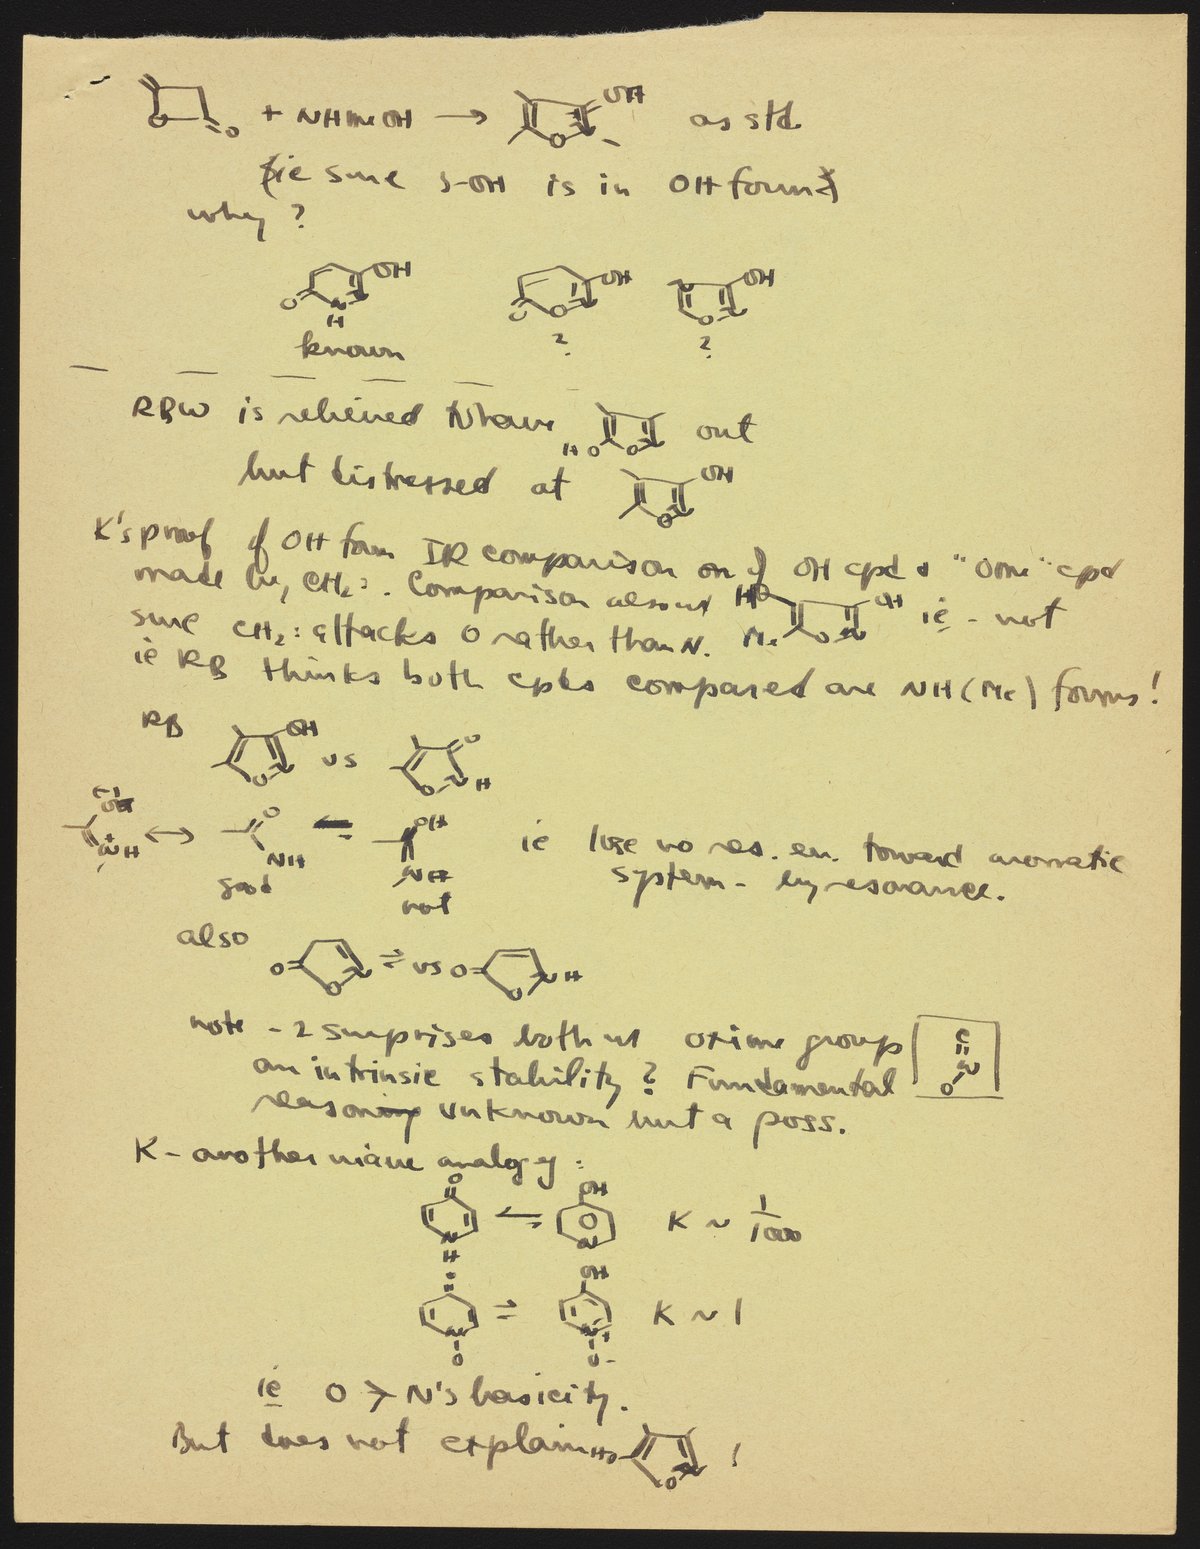 + NHMeOH → OH as std.
(ie sure 3-OH is in OH form)
why?
OH OH OH
O N H O O N O N
known ? ?
RBW is relieved N have HO O N out
but distressed at OH O N
K's proof of OH form IR comparison on of OH cpd & "OMe" cpd
made by CH2:. Comparison also w HO OH ie - not
sure CH2: attacks O rather than N. Me O N
ie RB thinks both cpds compared are NH (Me) forms!
RB OH vs O
O N O N H
(-) OH ↔ O ⇌ OH ie lose no res. en. toward aromatic
+ NH NH NH system - by resonance.
good not
also O= O N ⇌ vs O= O N H
note - 2 surprises both w oxime group C
an intrinsic stability? Fundamental N
reason unknown but a poss. O
K - another niave analogy:
O OH
N H ⇌ N K ~ 1/1000
O OH
N O ⇌ N+ O- K ~ 1
ie O > N's basicity.
But does not explain HO O N !